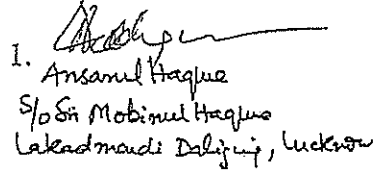 1.
Ansarul Haque
S/o Sri Mobinul Haque
Lakadmandi Daliganj, Lucknow